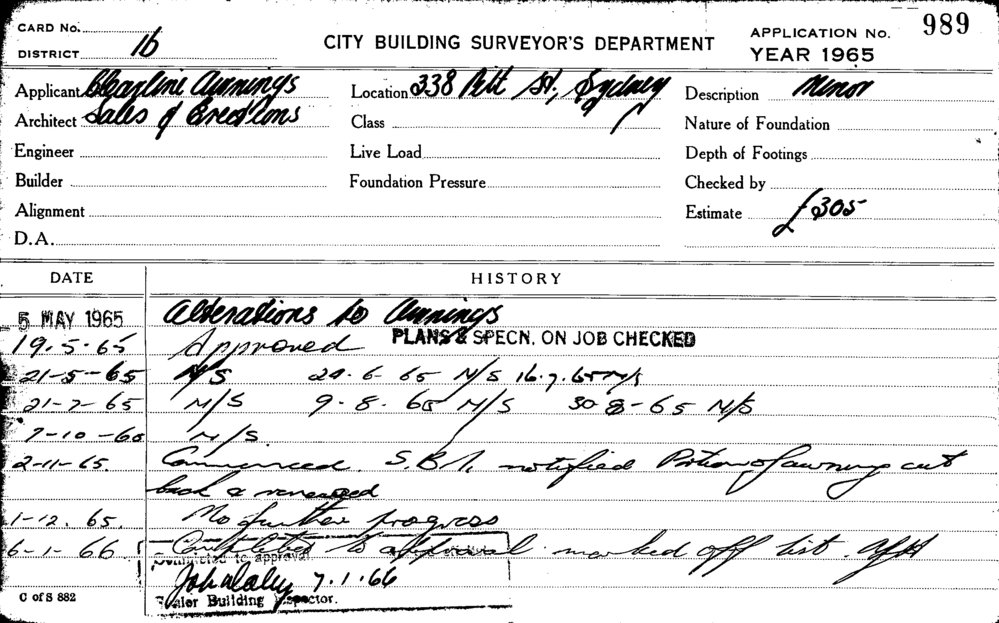 CARD No.
DISTRICT 1b
CITY BUILDING SURVEYOR'S DEPARTMENT
APPLICATION No. 989
YEAR 1965
Applicant Clearline Awnings
Location 338 Pitt St., Sydney
Description Minor
Architect Sales & Erections
Class
Nature of Foundation
Engineer
Live Load
Depth of Footings
Builder
Foundation Pressure
Checked by
Alignment
Estimate £305
D.A.
DATE HISTORY
5 MAY 1965 Alterations to Awnings
19.5.65 Approved PLANS & SPECN. ON JOB CHECKED
21-5-65 N/S 24-6-65 N/S 16.7.65 N/S
21-7-65 N/S 9-8-65 N/S 30-8-65 N/S
7-10-65 N/S.
2-11-65. Commenced. S.B.I. notified Portion of awning cut
back & renewed
1-12.65. No further progress
6-1-66 Completed to approval. marked off list.
Completed to approval
7.1.66
Senior Building Inspector.
C of S 882